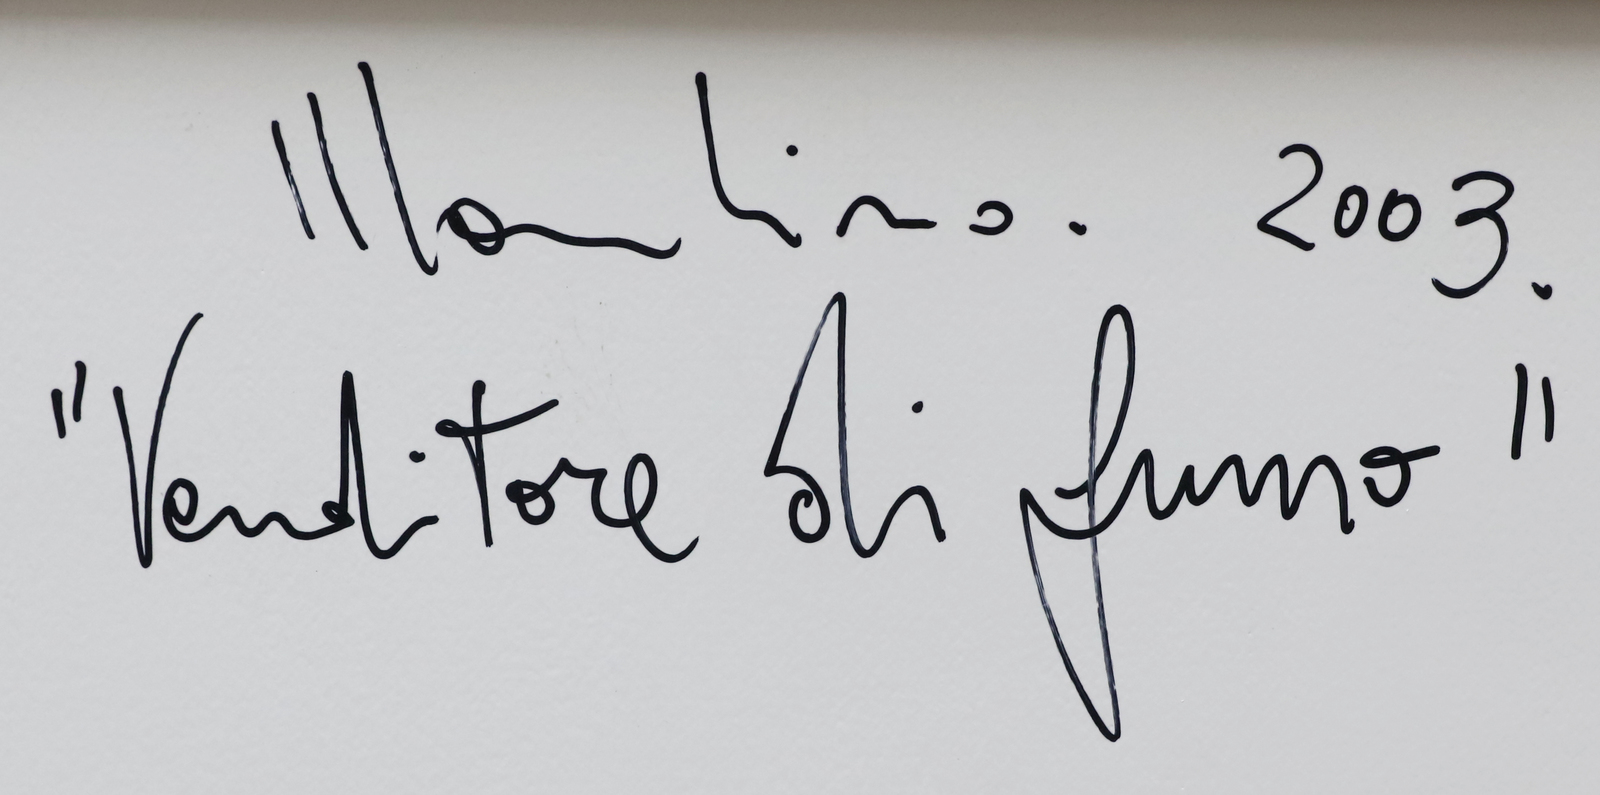 2003.
"Venditore di fumo"